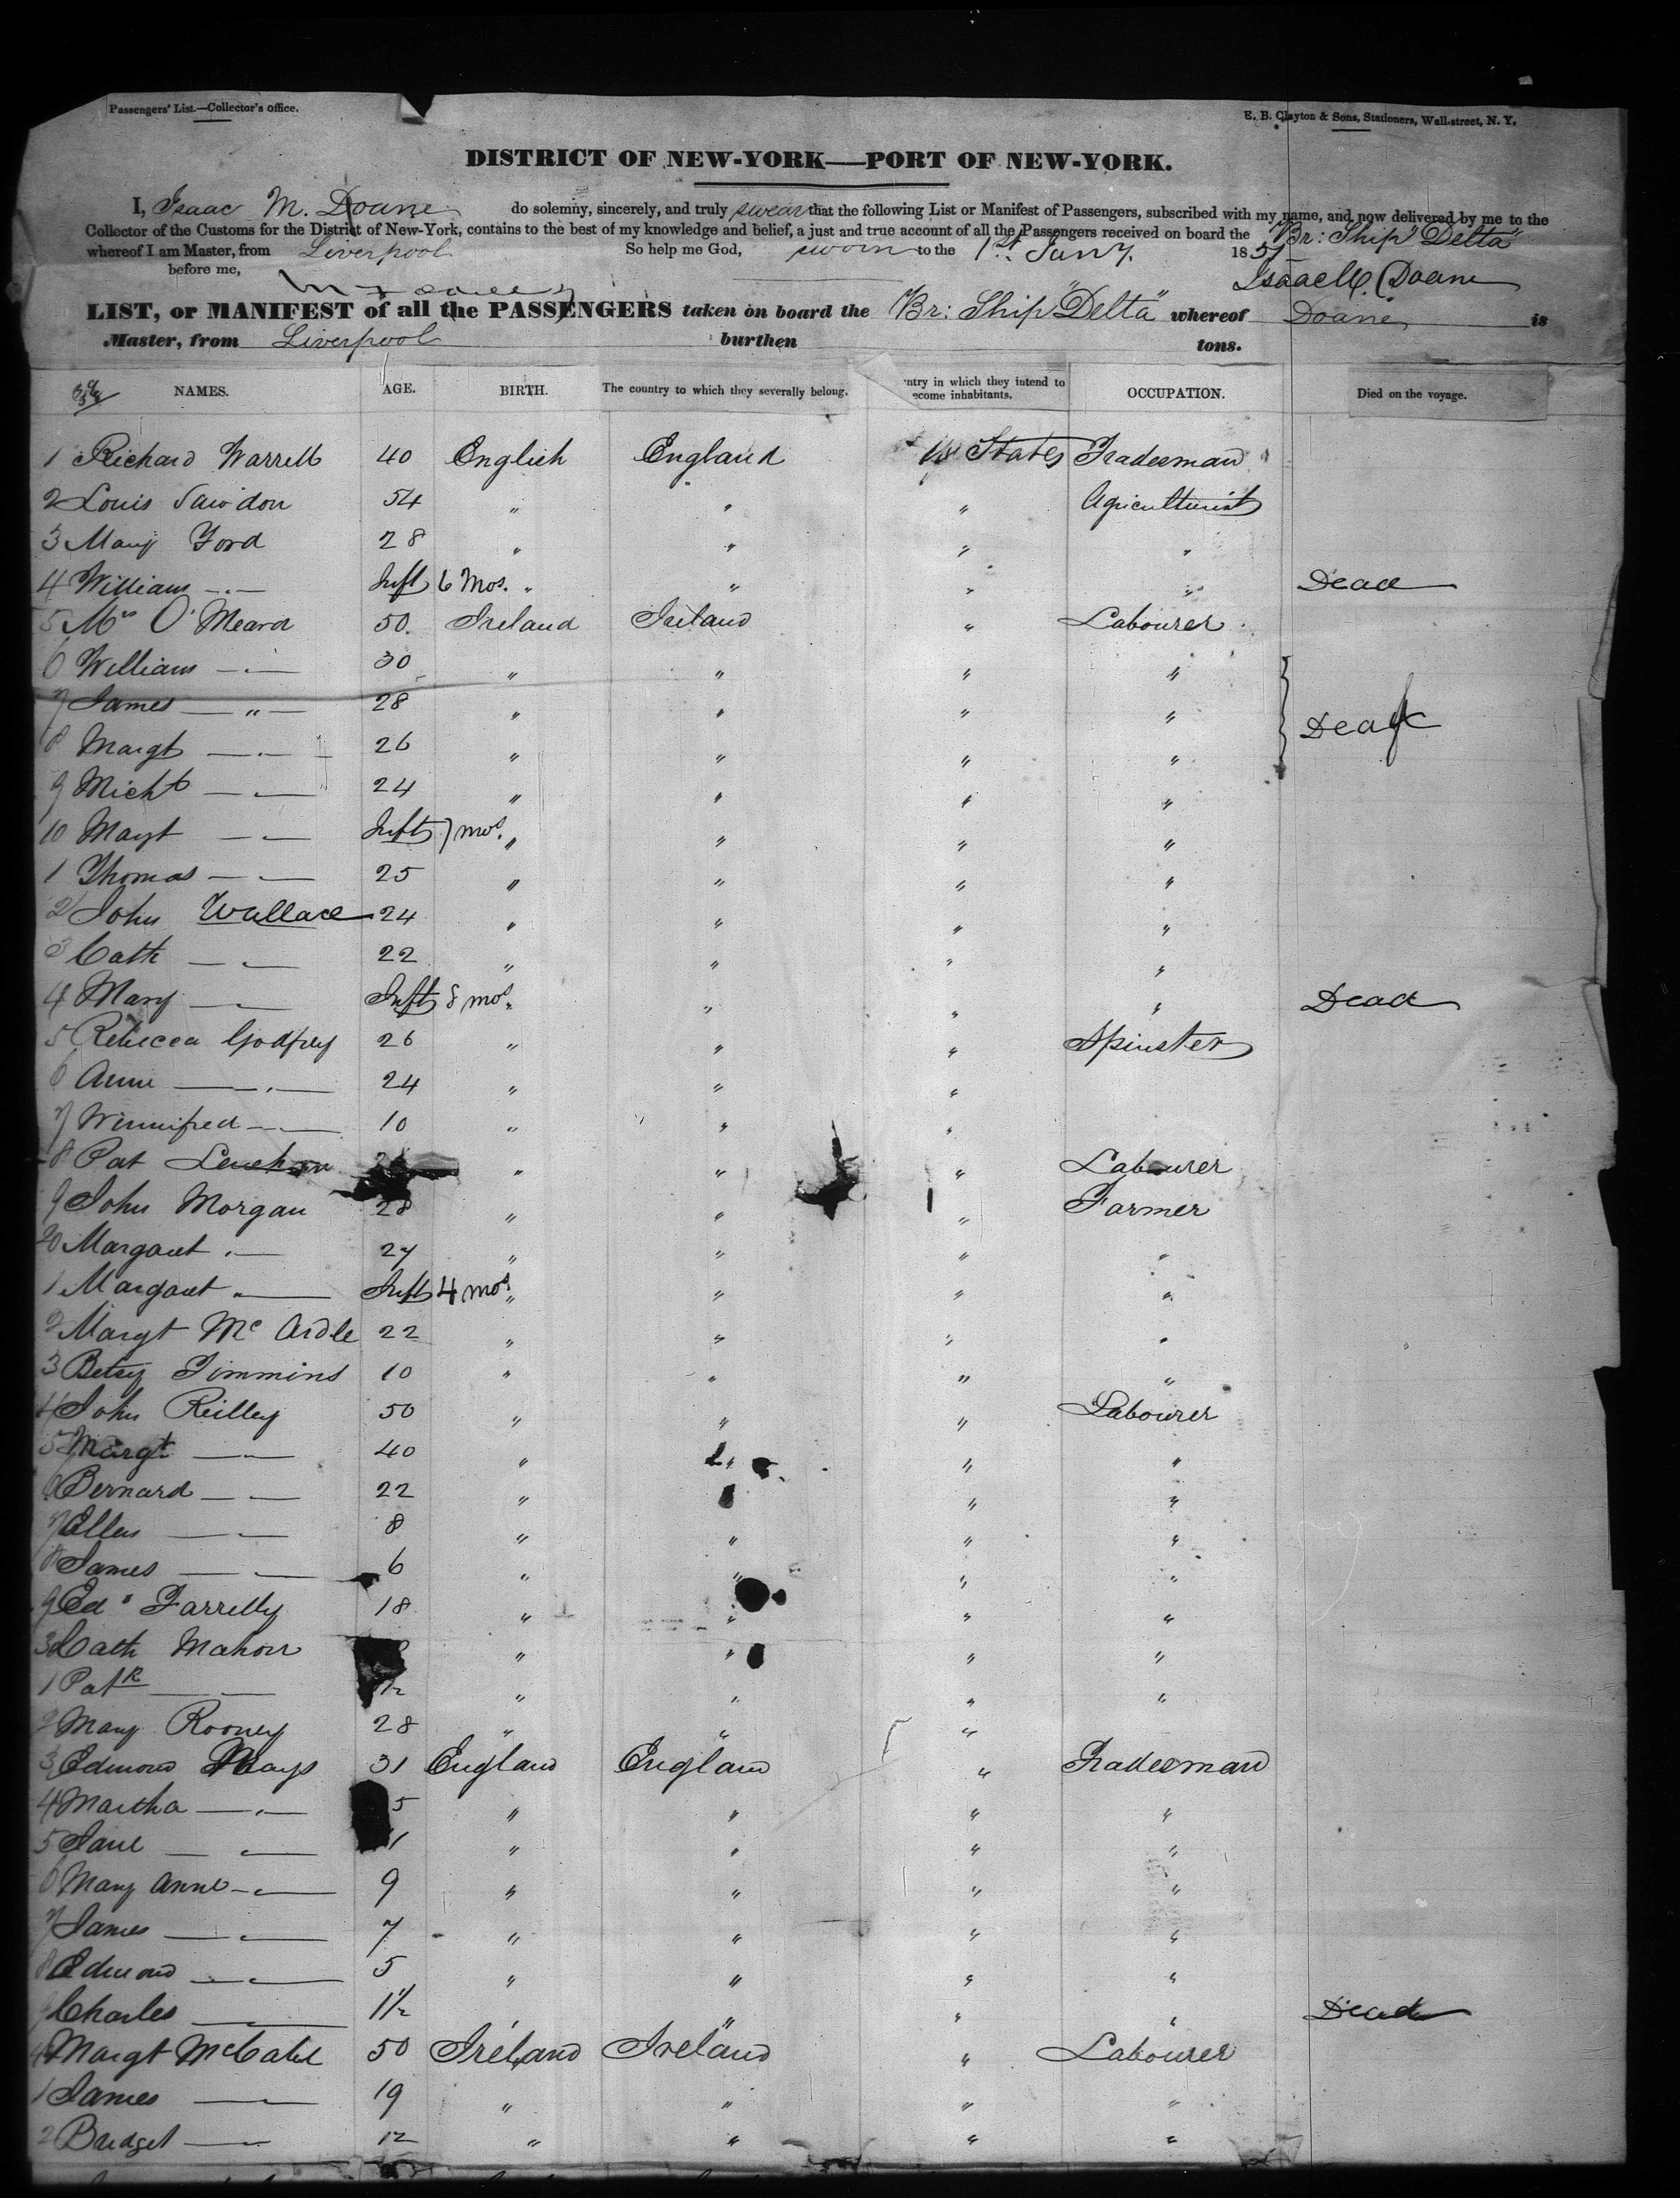 Passengers' List.—Collector's office.
E. B. Clayton & Sons, Stationers, Wall-street, N. Y.
DISTRICT OF NEW-YORK—PORT OF NEW-YORK.
I, Isaac M. Doane do solemny, sincerely, and truly swear that the following List or Manifest of Passengers, subscribed with my name, and now delivered by me to the
Collector of the Customs for the District of New-York, contains to the best of my knowledge and belief, a just and true account of all the Passengers received on board the Br: Ship "Delta"
whereof I am Master, from Liverpool So help me God, sworn to the 1st Jany. 1851
before me, Isaac M. Doane
LIST, or MANIFEST of all the PASSENGERS taken on board the Br: Ship "Delta" whereof Doane is
Master, from Liverpool burthen tons.
NAMES. AGE. BIRTH. The country to which they severally belong. ntry in which they intend to ecome inhabitants. OCCUPATION. Died on the voyage.
1 Richard Warrell 40 English England U States Tradesman
2 Louis Sawdon 54 " " " Agriculturist
3 Mary Ford 28 " " " "
4 William —"— Inft 6 Mos. " " " " Dead
5 Mrs O'Meara 50. Ireland Ireland " Labourer
6 William —"— 30 " " " "
7 James —"— 28 " " " "
8 Margt —"— 26 " " " "
9 Michl —"— 24 " " " "
10 Margt —"— Inft 7 mos. " " " "
1 Thomas —"— 25 " " " "
2 John Wallace 24 " " " "
3 Cath —"— 22 " " " "
4 Mary —"— Inft 8 mos. " " " " Dead
5 Rebecca Godfrey 26 " " " Spinster
6 Anne —"— 24 " " "
7 Winnifred —"— 10 " " "
8 Pat " " " Labourer
9 John Morgan 28 " " " Farmer
20 Margaret "— 27 " " " "
1 Margaret "— Inft 4 mos. " " " "
2 Margt Mc Ardle 22 " " " "
3 Betsy Timmins 10 " " " "
4 John Reilley 50 " " " Labourer
5 Margt —"— 40 " " " "
6 Bernard —"— 22 " " "
7 Ellen —"— 8 " " " "
8 James —"— 6 " " " "
9 Edd Farrelly 18 " " " "
30 Cath Mahon " " " "
1 Patk — " " " "
2 Mary Rooney 28 " " "
3 Edmond Mays 31 England England " Tradesman
4 Martha —"— 5 " " " "
5 Jane —"— 1 " " " "
6 Mary Anne —"— 9 " " " "
7 James —"— 7 " " " "
8 Edmond —"— 5 " " " "
9 Charles —"— 1½ " " " " Dead
40 Margt McCabe 50 Ireland Ireland " Labourer
1 James —"— 19 " " " "
2 Bridget —"— 12 " " " "